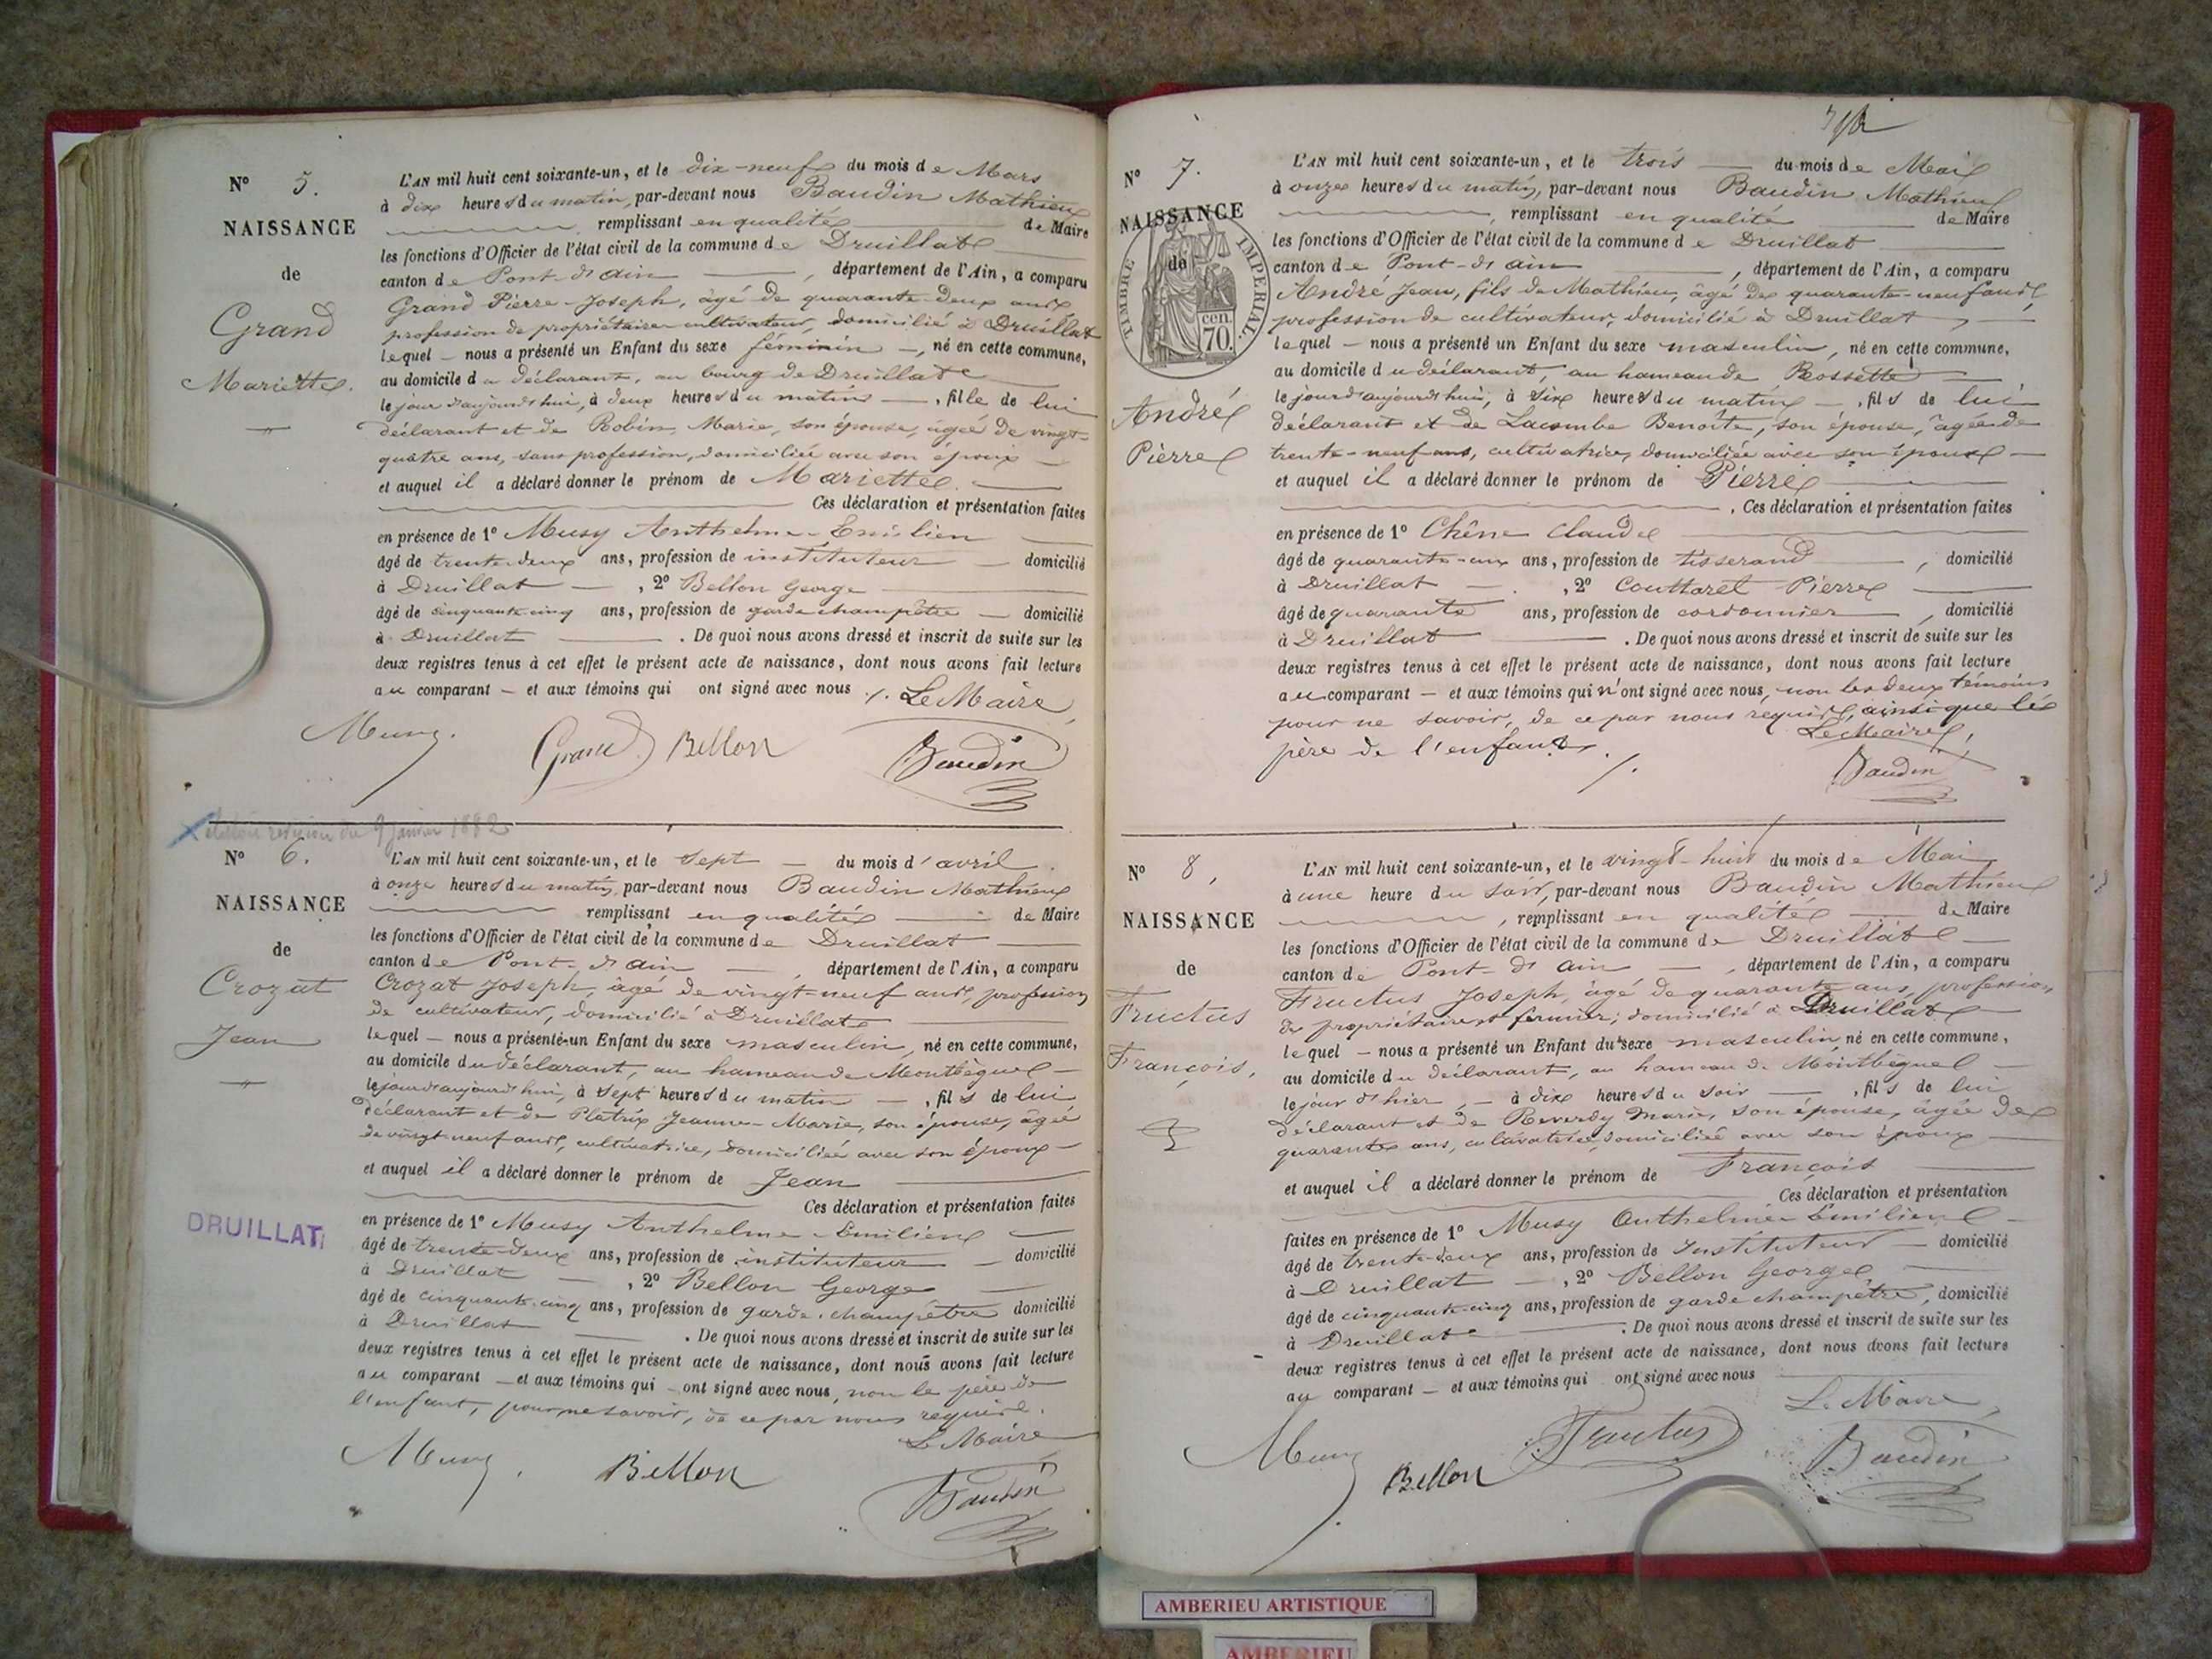 N° 5.
NAISSANCE
de
Grand
Mariette.
L'AN mil huit cent soixante-un, et le dix-neuf du mois de Mars
à dix heures du matin, par-devant nous Baudin Mathieu
remplissant en qualité de Maire
les fonctions d'Officier de l'état civil de la commune de Druillat
canton de Pont-d'ain, département de l'Ain, a comparu
Grand Pierre-Joseph, âgé de quarante-deux ans,
profession de propriétaire cultivateur, domicilié à Druillat
lequel – nous a présenté un Enfant du sexe féminin –, né en cette commune,
au domicile du déclarant, au bourg de Druillat
le jour d'aujourd'hui, à deux heures du matin –, fille de lui
déclarant et de Robin Marie, son épouse, âgée de vingt-
quatre ans, sans profession, domiciliée avec son époux –
et auquel il a déclaré donner le prénom de Mariette.
Ces déclaration et présentation faites
en présence de 1° Musy Anthelme-Emilien
âgé de trente-deux ans, profession de instituteur – domicilié
à Druillat –, 2° Bellon George
âgé de cinquante-cinq ans, profession de garde champêtre – domicilié
à Druillat. De quoi nous avons dressé et inscrit de suite sur les
deux registres tenus à cet effet le présent acte de naissance, dont nous avons fait lecture
au comparant – et aux témoins qui ont signé avec nous ./. Le Maire,
Musy. Grand Bellon Baudin
9 janvier 1882
N° 6.
NAISSANCE
de
Crozat
Jean
DRUILLAT
L'AN mil huit cent soixante-un, et le sept – du mois d'avril
à onze heures du matin, par-devant nous Baudin Mathieu
remplissant en qualité de Maire
les fonctions d'Officier de l'état civil de la commune de Druillat
canton de Pont-d'ain –, département de l'Ain, a comparu
Crozat Joseph, âgé de vingt-neuf ans, profession
de cultivateur, domicilié à Druillat
lequel – nous a présenté un Enfant du sexe masculin, né en cette commune,
au domicile du déclarant, au hameau de Montbègue –
le jour d'aujourd'hui, à sept heures du matin –, fils de lui
déclarant et de Platrix Jeanne-Marie, son épouse, âgée
de vingt-neuf ans, cultivatrice, domiciliée avec son époux –
et auquel il a déclaré donner le prénom de Jean
Ces déclaration et présentation faites
en présence de 1° Musy Anthelme-Emilien
âgé de trente-deux ans, profession de instituteur – domicilié
à Druillat –, 2° Bellon George
âgé de cinquante-cinq ans, profession de garde-champêtre domicilié
à Druillat. De quoi nous avons dressé et inscrit de suite sur les
deux registres tenus à cet effet le présent acte de naissance, dont nous avons fait lecture
au comparant – et aux témoins qui – ont signé avec nous, non le père de
l'enfant, pour ne savoir, de ce par nous requis.
Le Maire
Musy. Bellon Baudin
N° 7.
NAISSANCE
de
TIMBRE IMPERIAL.
70 cen.
André
Pierre
L'AN mil huit cent soixante-un, et le trois – du mois de Mai
à onze heures du matin, par-devant nous Baudin Mathieu
, remplissant en qualité de Maire
les fonctions d'Officier de l'état civil de la commune de Druillat
canton de Pont-d'ain, département de l'Ain, a comparu
André Jean, fils de Mathieu, âgé de quarante-neuf ans,
profession de cultivateur, domicilié à Druillat, –
lequel – nous a présenté un Enfant du sexe masculin, né en cette commune,
au domicile du déclarant, au hameau de Rossette
le jour d'aujourd'hui, à six heures du matin –, fils de lui
déclarant et de Lacombe Benoîte, son épouse, âgée de
trente-neuf ans, cultivatrice, domiciliée avec son époux –
et auquel il a déclaré donner le prénom de Pierre
. Ces déclaration et présentation faites
en présence de 1° Chêne Claude
âgé de quarante-un ans, profession de tisserand, domicilié
à Druillat –, 2° Couttaret Pierre
âgé de quarante ans, profession de cordonnier, domicilié
à Druillat. De quoi nous avons dressé et inscrit de suite sur les
deux registres tenus à cet effet le présent acte de naissance, dont nous avons fait lecture
au comparant – et aux témoins qui n'ont signé avec nous, non les deux témoins
pour ne savoir, de ce par nous requis, ainsi que le
père de l'enfant. ./. Le Maire,
Baudin
N° 8,
NAISSANCE
de
Fructus
François,
L'AN mil huit cent soixante-un, et le vingt-huit du mois de Mai
à une heure du soir, par-devant nous Baudin Mathieu
, remplissant en qualité de Maire
les fonctions d'Officier de l'état civil de la commune de Druillat –
canton de Pont-d'ain –, département de l'Ain, a comparu
Fructus Joseph, âgé de quarante ans, profession
de propriétaire et fermier, domicilié à Druillat
lequel – nous a présenté un Enfant du sexe masculin, né en cette commune,
au domicile du déclarant, au hameau de Montbègue –
le jour d'hier, – à dix heures du soir –, fils de lui
déclarant et de Reverdy Marie, son épouse, âgée de
quarante ans, cultivatrice, domiciliée avec son époux
et auquel il a déclaré donner le prénom de François
Ces déclaration et présentation
faites en présence de 1° Musy Anthelme Emilien –
âgé de trente-deux ans, profession de Instituteur – domicilié
à Druillat –, 2° Bellon George
âgé de cinquante-cinq ans, profession de garde champêtre, domicilié
à Druillat. De quoi nous avons dressé et inscrit de suite sur les
deux registres tenus à cet effet le présent acte de naissance, dont nous avons fait lecture
au comparant – et aux témoins qui ont signé avec nous
Le Maire,
Musy Bellon Fructus Baudin
AMBERIEU ARTISTIQUE
AMBERIEU